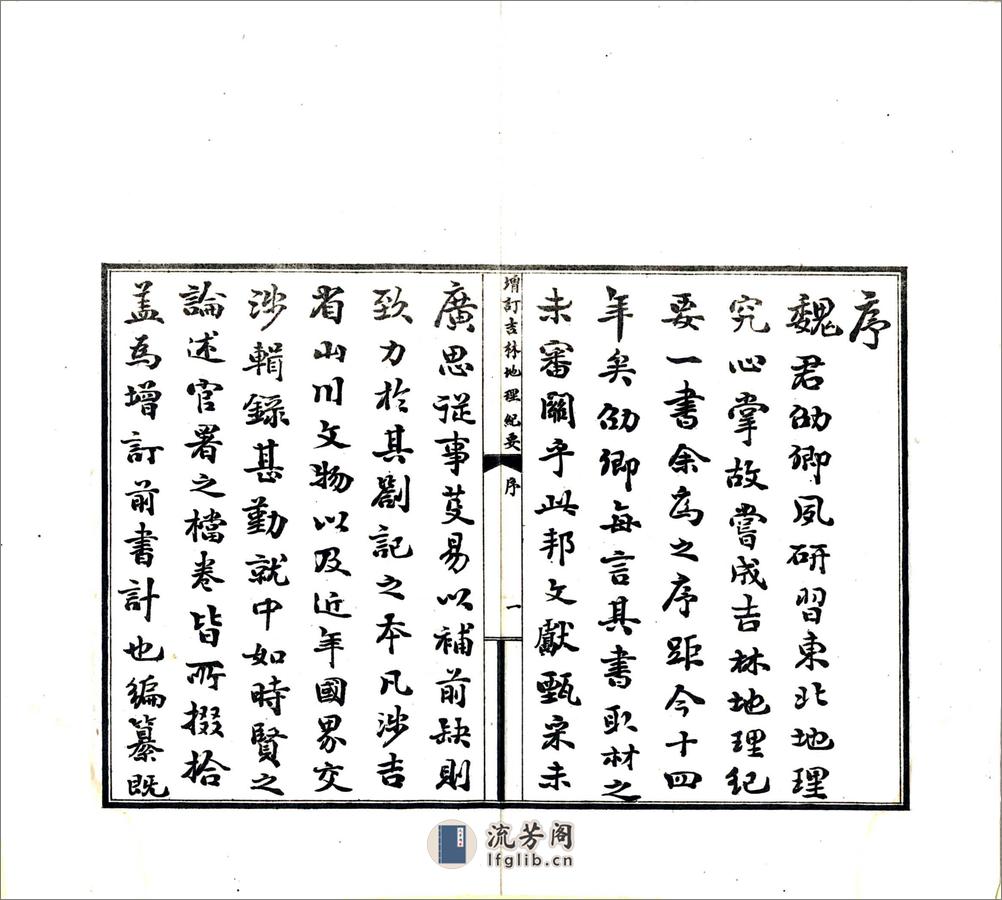 序
魏君劭卿夙研習東北地理
究心掌故嘗成吉林地理紀
要一書余為之序距今十四
年矣劭卿每言其書取材之
未審關乎此邦文獻甄采未
增訂吉林地理紀要
序
一
廣思從事芟易以補前缺則
致力於其劄記之本凡涉吉
省山川文物以及近年國界交
涉輯錄甚勤就中如時賢之
論述官署之檔卷皆所掇拾
蓋為增訂前書計也編纂既
流芳阁
lfglib.cn